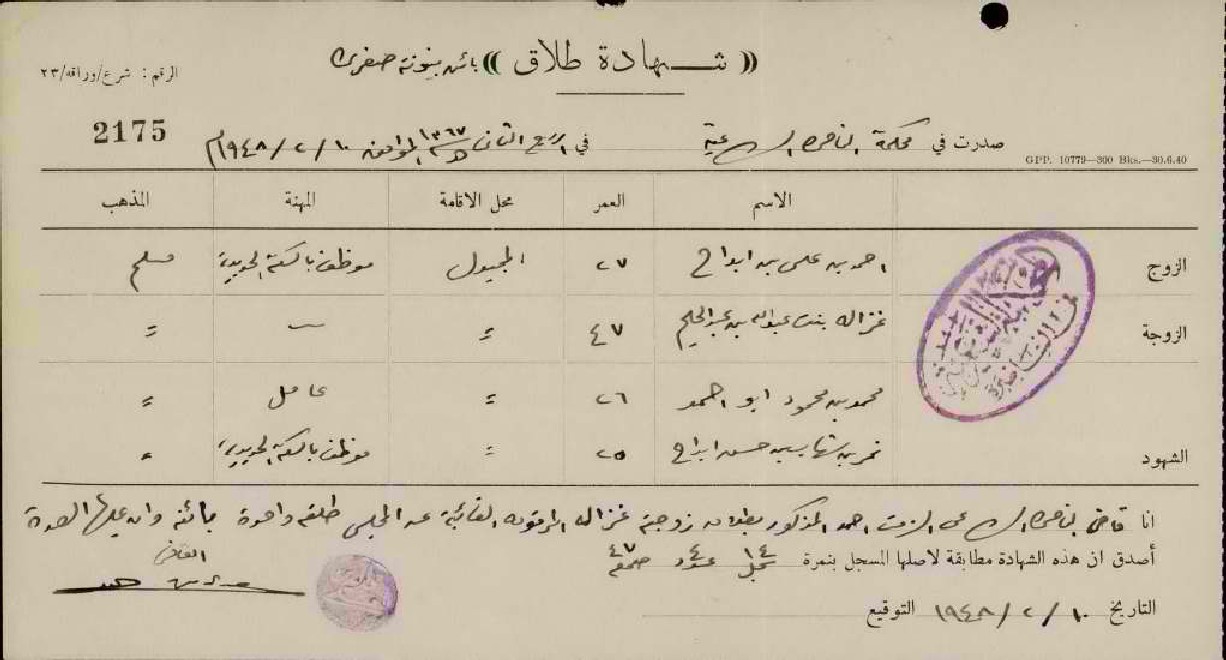 « شهادة طلاق » بائن بينونة صغرى
الرقم : شرع/وراقه/٢٣
2175
صدرت في محكمة الناصره الشرعية في ربيع الثاني سنة ١٣٦٧ هـ الموافق ١٠ / ٢ / ١٩٤٨م
GPP. 10779—300 Bks.—30.6.40
الاسم العمر محل الاقامة المهنة المذهب
الزوج احمد بن علي بن ٢٧ المجيدل موظف بالسكة الحديدية مسلم
الزوجة غزاله بنت عبدالله بن عبدالحليم ٤٧ = — =
محمد بن محمود ابو احمد ٢٦ = عامل =
الشهود نمر بن حسن ٢٥ = موظف بالسكة الحديدية =
انا قاضي الناصره الشرعي احمد المذكور زوجته غزاله الغائبة عن المجلس طلقه واحدة بائنه وان عليها العدة
أصدق ان هذه الشهادة مطابقة لاصلها المسجل بنمرة ٤ سجل ١٤ عدد ٤ صحيفة ٤٧
القاضي
التاريخ ١٠ / ٢ / ١٩٤٨ التوقيع